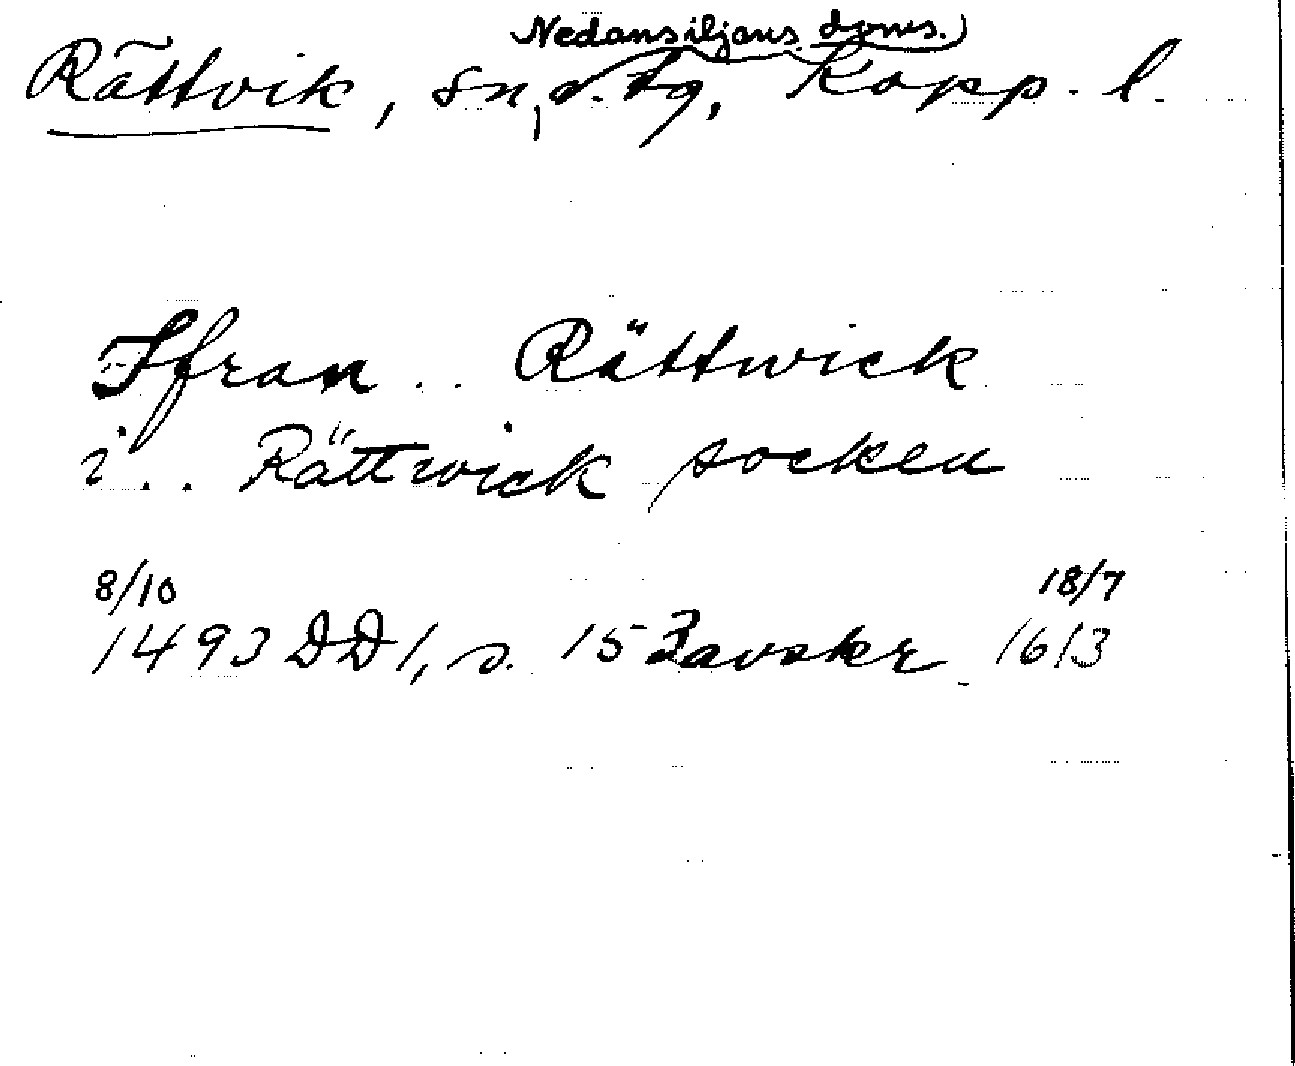 Nedansiljans doms.)
Rättvik, sn, o. tg, Kopp. l.
Ffran .. Rättwick
i .. Rättwick socken
8/10 18/7
1493 DD 1, s. 153 avskr 1613